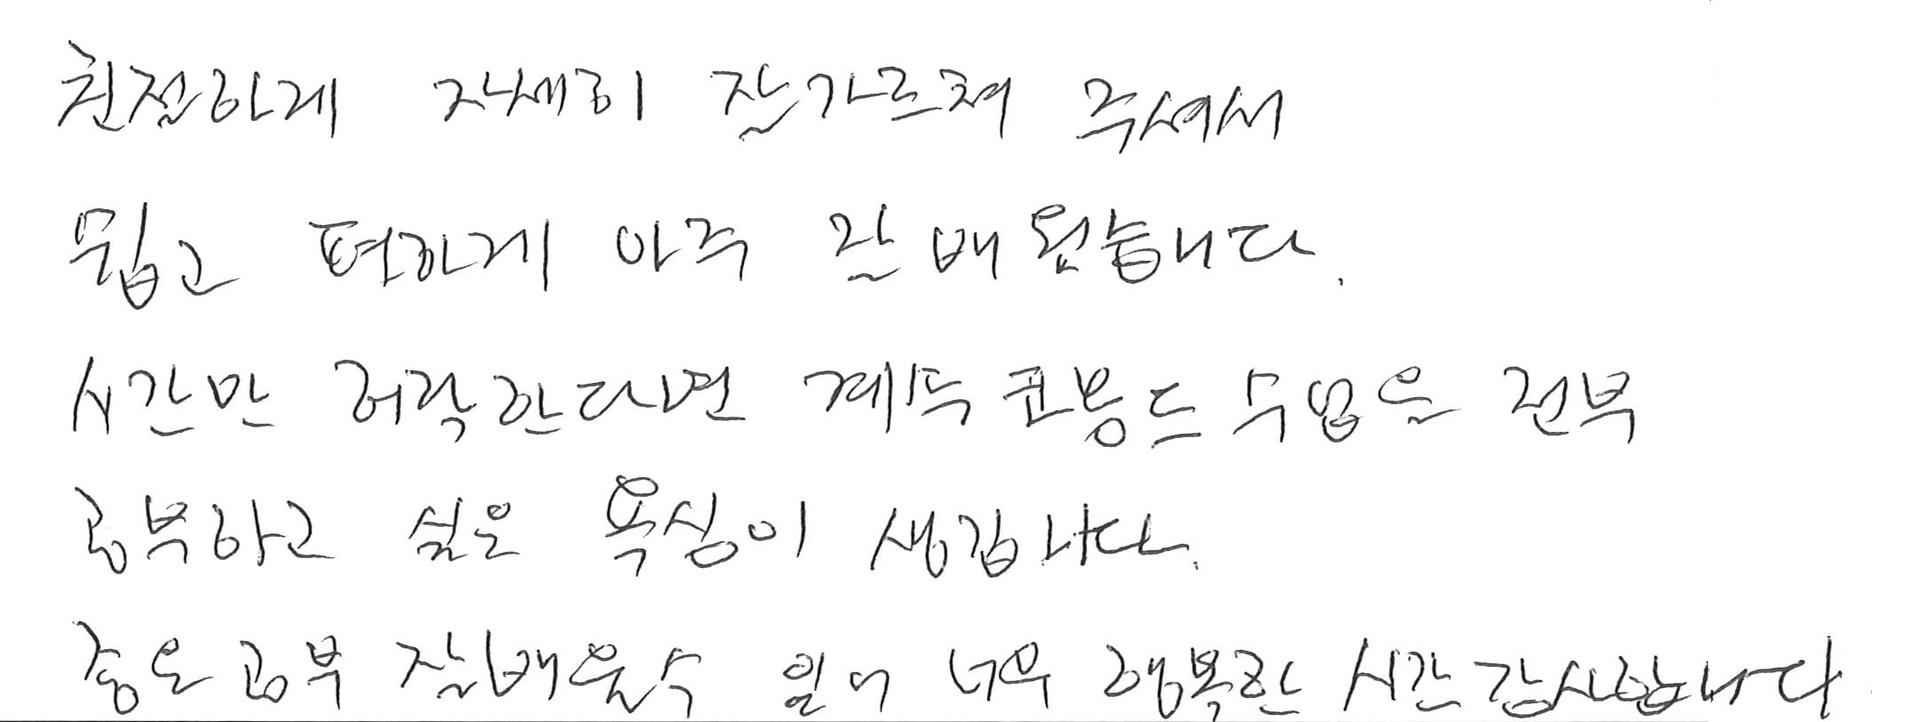 친절하게 자세히 잘가르쳐 주셔서
쉽고 편하게 아주 잘 배웠습니다.
시간만 허락한다면 계속 코봉드 수업을 전부
공부하고 싶은 욕심이 생깁니다.
좋은 공부 잘배울수 있어 너무 행복한 시간 감사합니다